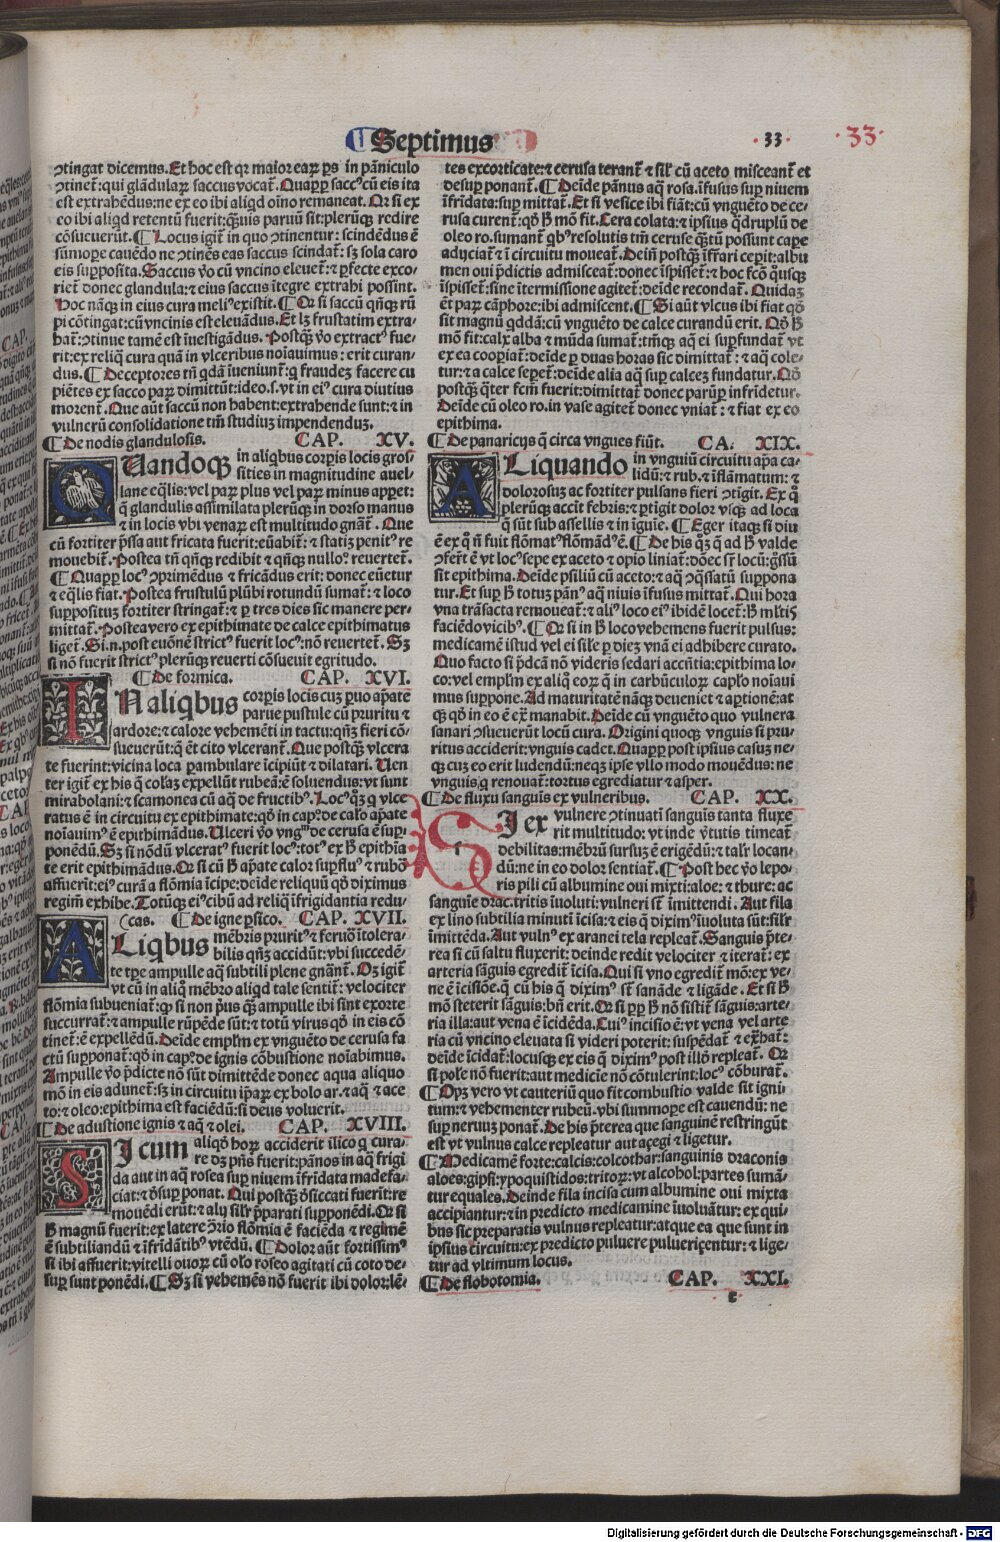 Septimus
33
33
ↄtingat dicemus. Et hoc est qꝛ maior eaꝝ ps in pāniculo
ↄtinet: qui glādulaꝝ saccus vocat. Quapp sacc⁹ cū eis ita
est extrahēdus: ne ex eo ibi aliqd oīno remaneat. Qꝛ si ex
eo ibi aliqd retentū fuerit: q̄uis paruū sit: pleruqꝫ redire
cōsueuerūt. ¶ Locus igit in quo ↄtinentur: scindēdus ē
sūmope cauēdo ne ↄtinēs eas saccus scindat: sꝫ sola caro
eis supposita. Saccus v̄o cū vncino eleuet: ⁊ pfecte exco-
riet donec glandula: ⁊ eius saccus ītegre extrahi possint.
Hoc nāqꝫ in eius cura meli⁹ existit. ¶ Qꝛ si saccū qn̄qꝫ rū
pi cōtingat: cū vncinis est eleuādus. Et lꝫ frustatim extra-
hat: ↄtinue tamē est īuestigādus. Postqꝫ v̄o extract⁹ fue-
rit: ex reliq cura quā in vlceribus noīauimus: erit curan-
dus. ¶ Deceptores tn̄ qdā īueniunt: q fraudeꝫ facere cu
piētes ex sacco parꝫ dimittūt: ideo.s.vt in ei⁹ cura diutius
morent. Que aūt saccū non habent: extrahende sunt: ⁊ in
vulnerū consolidatione tm̄ studiuꝫ impendenduꝫ.
¶ De nodis glandulosis. CAP. XV.
QUandoqꝫ in aliqbus corpis locis gros
sities in magnitudine auel-
lane eqlis: vel parꝫ plus vel parꝫ minus appet:
q glandulis assimilata pleruqꝫ in dorso manus
⁊ in locis vbi venaꝝ est multitudo gnāt. Que
cū fortiter pssa aut fricata fuerit: euābit: ⁊ statiꝫ penit⁹ re
mouebit. Postea tn̄ qn̄qꝫ redibit ⁊ qn̄qꝫ nullo revertet.
¶ Quapp loc⁹ ↄprimēdus ⁊ fricādus erit: donec euetur
⁊ eqlis fiat. Postea frustulū plūbi rotundū sumat: ⁊ loco
suppositum fortiter stringat: ⁊ p tres dies sic manere per-
mittat. Postea vero ex epithimate de calce epithimatus
liget. Si.n.post euōnē strict⁹ fuerit loc⁹: nō reuertet. Sꝫ
si nō fuerit strict⁹ pleruqꝫ reuerti cōsueuit egritudo.
¶ De formica. CAP. XVI.
IN aliqbus corpis locis cuꝫ pruo apāte
parue pustule cū pruritu ⁊
ardore: ⁊ calore vehemēti in tactu: qn̄qꝫ fieri cō-
sueuerūt: q ēt cito vlcerant. Que postqꝫ vlcera
te fuerint: vicina loca pambulare īcipiūt ⁊ dilatari. Uen
ter igit ex his q colaꝫ expellūt rubeā: ē soluendus: vt sunt
mirabolani: ⁊ scamonea cū aq de fructib⁹. Loc⁹ qꝫ q vlce
ratus ē in circuitu ex epithimate: qō in cap⁰. de calo apāte
noīauim⁹ ē epithimādus. Ulceri v̄o vngm̄ de cerusa ē sup-
ponēdū. Sꝫ si nōdū vlcerat⁹ fuerit loc⁹: tot⁹ ex ꝧ epithīa
te erit epithimādus. Qꝛ si cū ꝧ apāte calor supflu⁹ ⁊ rubō
affuerit: ei⁹ curā a flōmia īcipe: deīde reliquū qō diximus
regim̄ exhibe. Totūqꝫ ei⁹ cibū ad reliq īfrigidantia redu-
cas. ¶ De igne psico. CAP. XVII.
ALiqbus mēbris prurit⁹ ⁊ feruō itolera-
bilis qn̄ꝫ accidūt: vbi succedē-
te tpe ampulle aq subtili plene gnānt. Qꝫ igit
vt cū in aliq mēbro aliqd tale sentit: velociter
flōmia subueniat: qꝫ si non pus qꝫ ampulle ibi sint exorte
succurrat: ⁊ ampulle rūpēde sūt: ⁊ totū virus qō in eis cō
tinet: ē expellēdū. Deīde emplm̄ ex vngueto de cerusa fa
ctū supponat: qō in cap⁰. de ignis cōbustione noīabimus.
Ampulle v̄o pdicte nō sūt dimittēde donec aqua aliquo
mō in eis adunet: sꝫ in circuitu ipaꝝ ex bolo ar.⁊ aq ⁊ ace
to: ⁊ oleo: epithima est faciēdū: si deus voluerit.
¶ De adustione ignis ⁊ aq ⁊ olei. CAP. XVIII.
SI cum aliqō hoꝝ acciderit ilico q cura-
re dꝫ pns fuerit: pānos in aq frigi
da aut in aq rosea sup niuem īfridata madefa-
ciat: ⁊ dsup ponat. Qui postqꝫ dsiccati fuerīt: re
mouēdi erūt: ⁊ alꝫ silr pparati supponēdi. Qꝛ si
ꝧ magnū fuerit: ex latere ↄrio flōmia ē faciēda ⁊ regimē
ē subtiliandū ⁊ īfridātib⁹ vtēdū. ¶ Dolor aūt fortissim⁹
si ibi affuerit: vitelli ouoꝝ cū olo roseo agitati cū coto de-
sup sunt ponēdi. ¶ Sꝫ si vehemēs nō fuerit ibi dolor: lē-
tes excorticate: ⁊ cerusa terant ⁊ silr cū aceto misceant et
desup ponant. ¶ Deīde pānus aq rosa. īfusus sup niuem
īfridata: sup mittat. Et si vesice ibi fiāt: cū vnguēto de ce-
rusa curent: qō ꝧ mō fit. Cera colata: ⁊ ipsius qdruplū de
oleo ro. sumant qb⁹ resolutis tm̄ ceruse qꝫtū possunt cape
adijciat ⁊ ī circuitu moueat. Dein̄ postqꝫ īfrari cepit: albu
men oui pdictis admisceat: donec īspisset: ⁊ hoc fcō qusqꝫ
īspisset: sine itermissione agitet: deīde recondat. Quidaꝫ
ēt parꝫ cāphore: ibi admiscent. ¶ Si aūt vlcus ibi fiat qō
sit magnū qddā: cū vnguēto de calce curandū erit. Qō ꝧ
mō fit: calx alba ⁊ mūda sumat: tm̄qꝫ aq ei supfundat vt
ex ea coopiat: deīde p duas horas sic dimittat: ⁊ aq cole-
tur: ⁊ a calce sepet: deīde alia aq sup calceꝫ fundatur. Qō
postqꝫ qter fcm̄ fuerit: dimittat donec parūp infridetur.
Deīde cū oleo ro. in vase agitet donec vniat: ⁊ fiat ex eo
epithima.
¶ De panaricijs q circa vngues fiūt. CA. XIX.
ALiquando in vnguiū circuitu apa ca-
lidū: ⁊ rub. ⁊ īflāmatum: ⁊
dolorosuꝫ ac fortiter pulsans fieri ↄtigit. Ex q
pleruqꝫ accīt febris: ⁊ ptigit dolor vsqꝫ ad loca
q sūt sub assellis ⁊ in īguīe. ¶ Eger itaqꝫ si diu
ē ex q n̄ fuit flōmat⁹ flōmād⁹ ē. ¶ De his qꝫ q ad ꝧ valde
ↄfert ē vt loc⁹ sepe ex aceto ⁊ opio liniat: dōec sr locū: gssū
sit epithima. Deīde psiliū cū aceto: ⁊ aq ↄqssatū suppona
tur. Et sup ꝧ totuꝫ pān⁹ aq niuis īfusus mittat. Qui hora
vna trāsacta remoueat: ⁊ ali⁹ loco ei⁹ ibidē locet: ꝧ mltis
faciēdo vicib⁹. ¶ Qꝛ si in ꝧ loco vehemens fuerit pulsus:
medicamē istud vel ei sile p dieꝫ vnā ei adhibere curato.
Quo facto si pdcā nō videris sedari accn̄tia: epithima lo-
co: vel emplm̄ ex aliq eoꝝ q in carbūculoꝝ caplo noīaui
mus suppone. Ad maturitatē nāqꝫ deueniet ⁊ aptionē: at
qꝫ qō in eo ē ex manabit. Deīde cū vnguēto quo vulnera
sanari ↄsueuerūt locū cura. Origini quoqꝫ vnguis si pru-
ritus acciderit: vnguis cadet. Quapp post ipsius casuꝫ ne-
qꝫ cuꝫ eo erit ludendū: neqꝫ ipse vllo modo mouēdus: ne
vnguis q renouat: tortus egrediatur ⁊ asper.
¶ De fluxu sanguis ex vulneribus. CAP. XX.
SI ex vulnere ↄtinuati sanguis tanta fluxe
rit multitudo: vt inde v̄tutis timeat
debilitas: mēbrū sursuꝫ ē erigēdū: ⁊ talr locan-
dū: ne in eo dolor sentiat. ¶ Post hec v̄o lepo-
ris pili cū albumine oui mixti: aloe: ⁊ thure: ac
sanguīe drac. tritis īuoluti: vulneri st īmittendi. Aut fila
ex lino subtilia minuti īcisa: ⁊ eis q dixim⁹ īuoluta sūt: silr
īmittēda. Aut vuln⁹ ex aranei tela repleat. Sanguis pte-
rea si cū saltu fluxerit: deinde redit velociter ⁊ iterat: ex
arteria sāguis egredit īcisa. Qui si vno egredit mō: ex ve-
ne ē īcisiōe. q cū his q dixim⁹ st sanāde ⁊ ligāde. Et si ꝧ
mō steterit sāguis: bn̄ erit. Qꝛ si pp ꝧ nō sistit sāguis: arte-
ria illa: aut vena ē īcidēda. Cui⁹ incisio ē: vt vena vel arte
ria cū vncino eleuata si videri poterit: suspēdat ⁊ exhat:
deīde īcidat: locusqꝫ ex eis q dixim⁹ post illō repleat. Qꝛ
si pole nō fuerit: aut medicīe nō cōtulerint: loc⁹ cōburat.
¶ Opꝫ vero vt cauteriū quo fit combustio valde sit igni
tum: ⁊ vehementer rubeū. vbi summope est cauendū: ne
sup neruuꝫ ponat. De his pterea que sanguinē restringūt
est vt vulnus calce repleatur aut açegi ⁊ ligetur.
¶ Medicamē forte: calcis: colcothar: sanguinis draconis
aloes: gipsi: ypoquistidos: tritoꝝ: vt alcohol: partes sumā-
tur equales. Deinde fila incisa cum albumine oui mixta
accipiantur: ⁊ in predicto medicamine īuoluātur: ex qui-
bus sic preparatis vulnus repleatur: atque ea que sunt in
ipsius circuitu: ex predicto puluere puluericentur: ⁊ lige-
tur ad vltimum locus.
¶ De flobotomia. CAP. XXI.
e
Digitalisierung gefördert durch die Deutsche Forschungsgemeinschaft - DFG